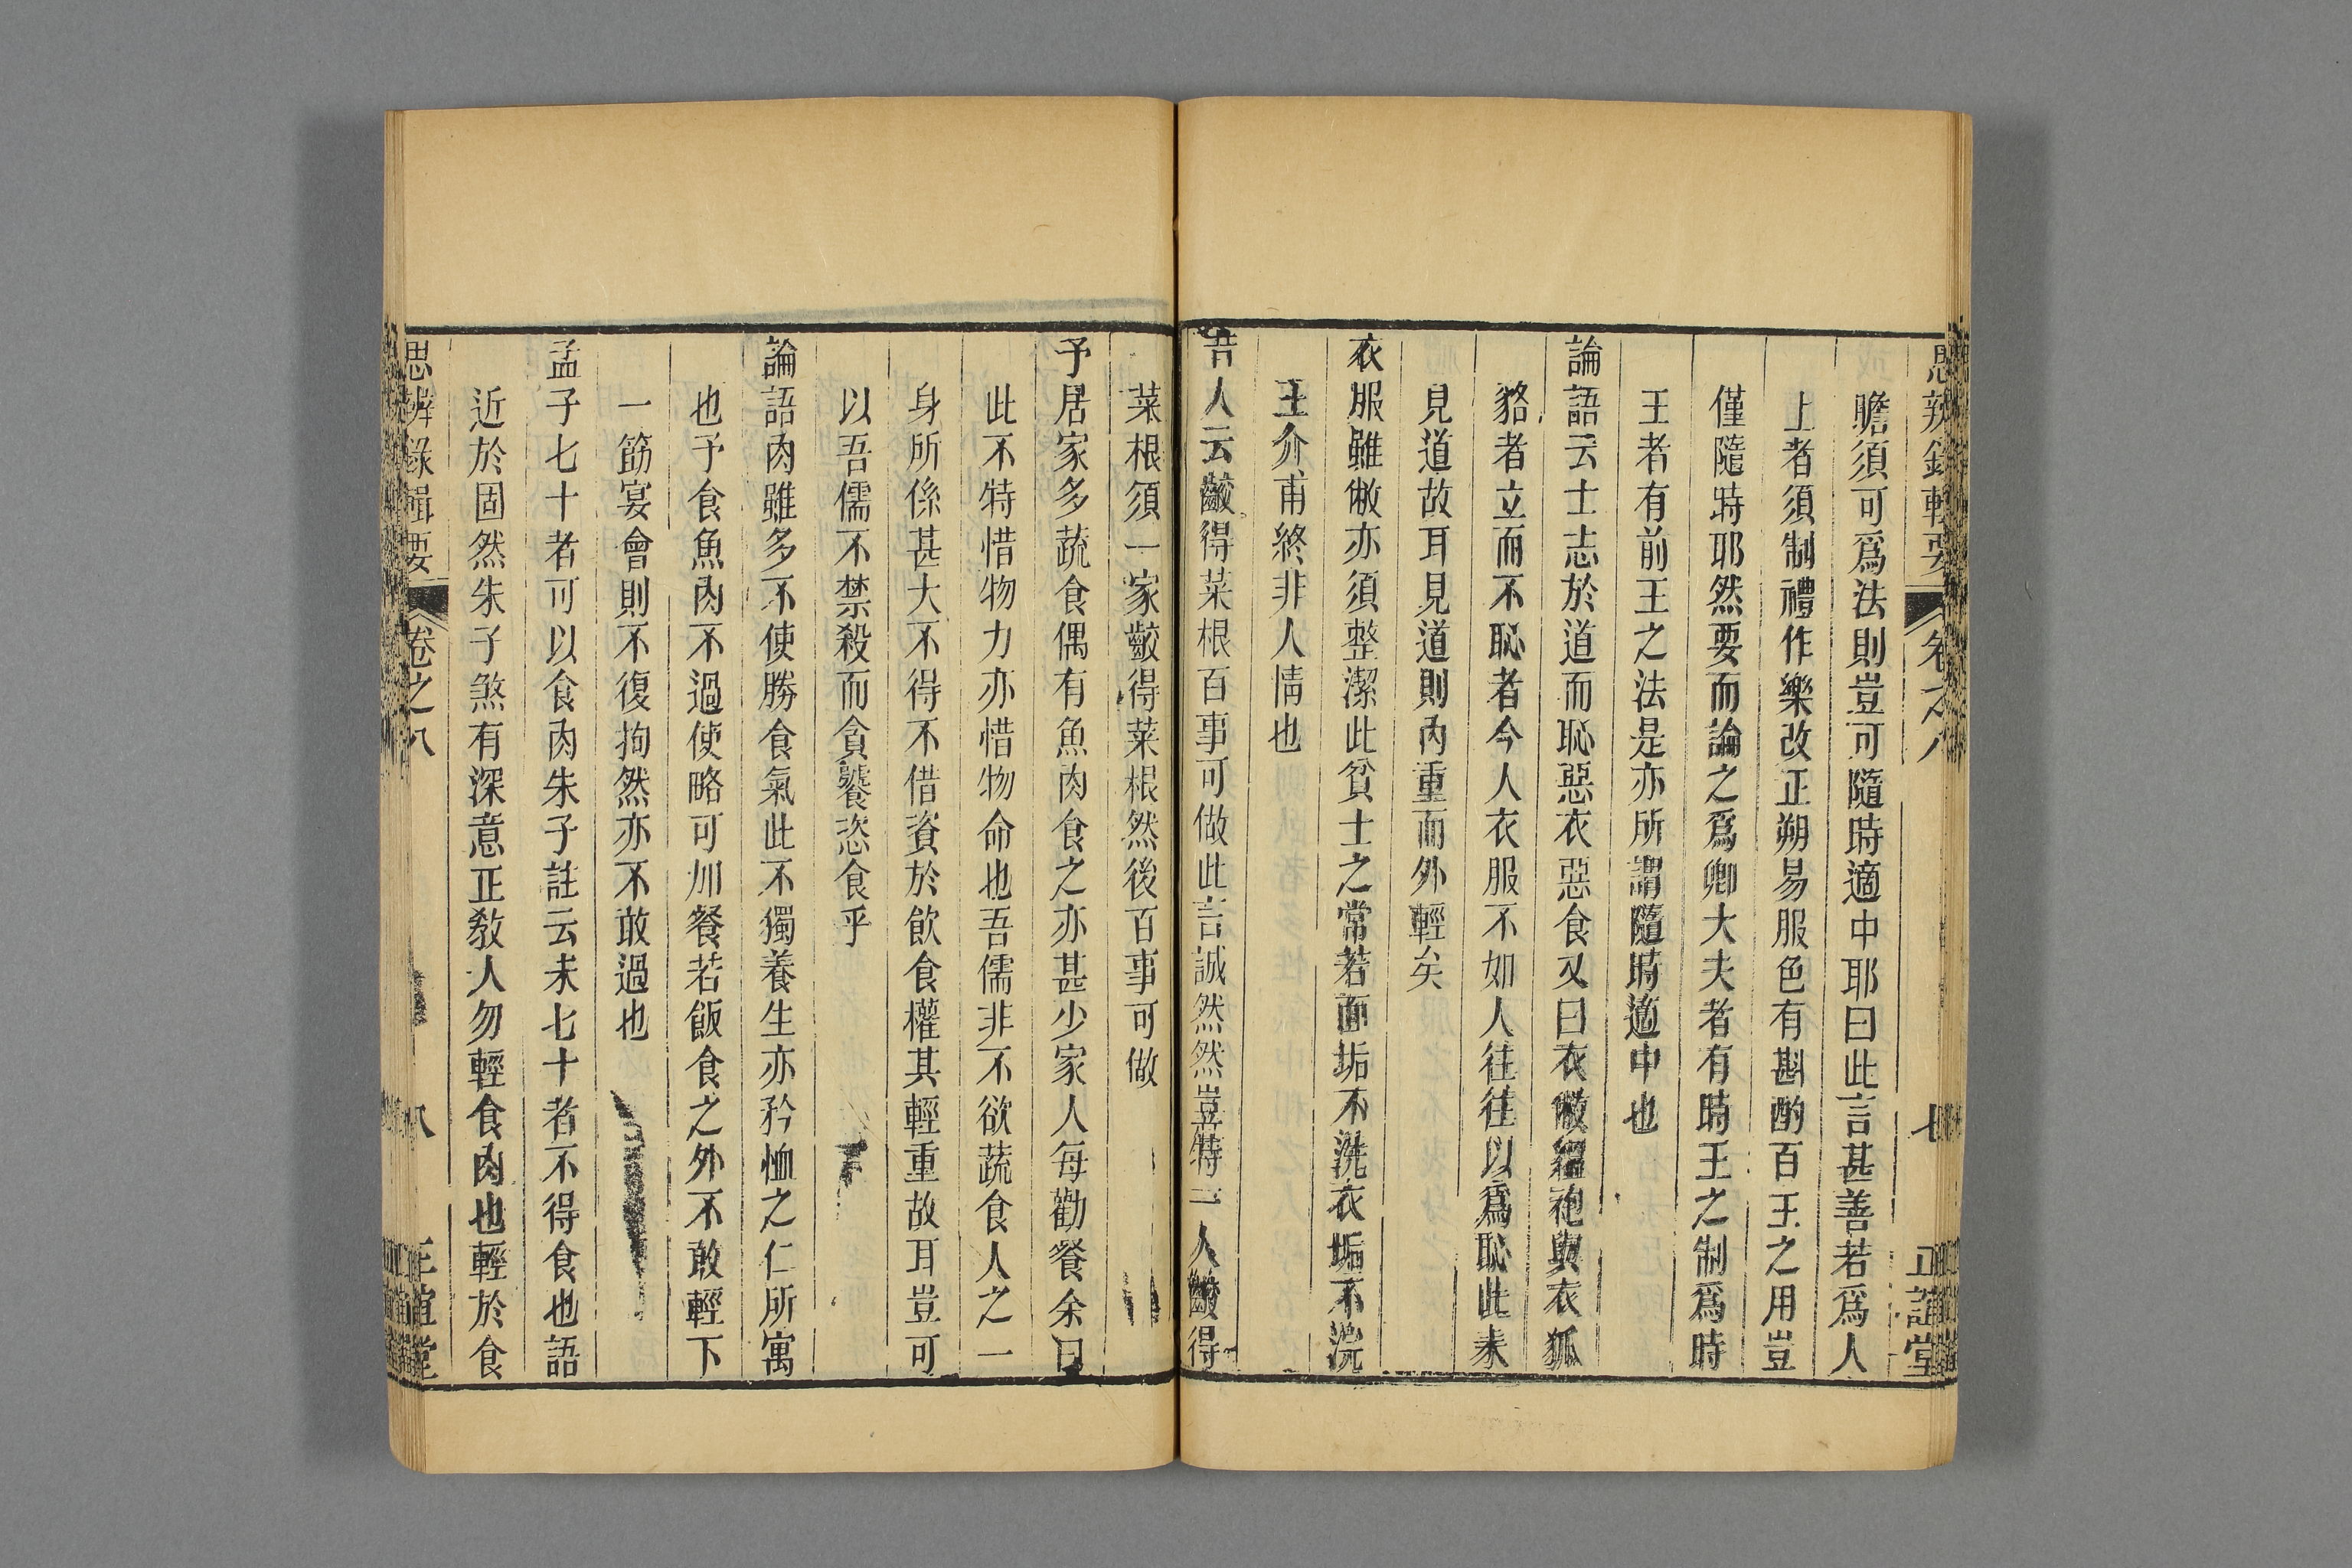 思辨錄輯要 卷之八 七 正誼堂
瞻須可爲法則豈可隨時適中耶曰此言甚善若爲人
上者須制禮作樂改正朔易服色有斟酌百王之用豈
僅隨時耶然要而論之爲卿大夫者有時王之制爲時
王者有前王之法是亦所謂隨時適中也
論語云士志於道而恥惡衣惡食又曰衣敝縕袍與衣狐
貉者立而不恥者今人衣服不如人往往以爲恥此未
見道故耳見道則內重而外輕矣
衣服雖敝亦須整潔此貧士之常若面垢不洗衣垢不浣
王介甫終非人情也
吾人云齩得菜根百事可做此言誠然然豈特一人齩得
菜根須一家齩得菜根然後百事可做
予居家多蔬食偶有魚肉食之亦甚少家人每勸餐余曰
此不特惜物力亦惜物命也吾儒非不欲蔬食人之一
身所係甚大不得不借資於飲食權其輕重故耳豈可
以吾儒不禁殺而貪饕恣食乎
論語肉雖多不使勝食氣此不獨養生亦矜恤之仁所寓
也予食魚肉不過使略可加餐若飯食之外不敢輕下
一筯宴會則不復拘然亦不敢過也
孟子七十者可以食肉朱子註云未七十者不得食也語
近於固然朱子煞有深意正敎人勿輕食肉也輕於食
思辨錄輯要 卷之八 八 正誼堂